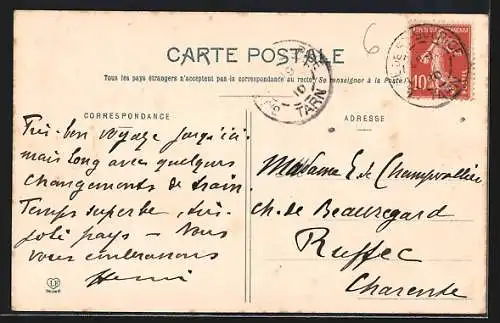 CARTE POSTALE
Tous les pays étrangers n'acceptent pas la correspondance au recto (Se renseigner à la Poste)
6
10
TARN
10
CORRESPONDANCE
ADRESSE
Très bon voyage jusqu'ici
mais long avec quelques
changements de train
Temps superbe, très
joli pays – Nous
vous embrassons
Henri
Madame E. de Champvallier
ch. de Beauregard
Ruffec
Charente